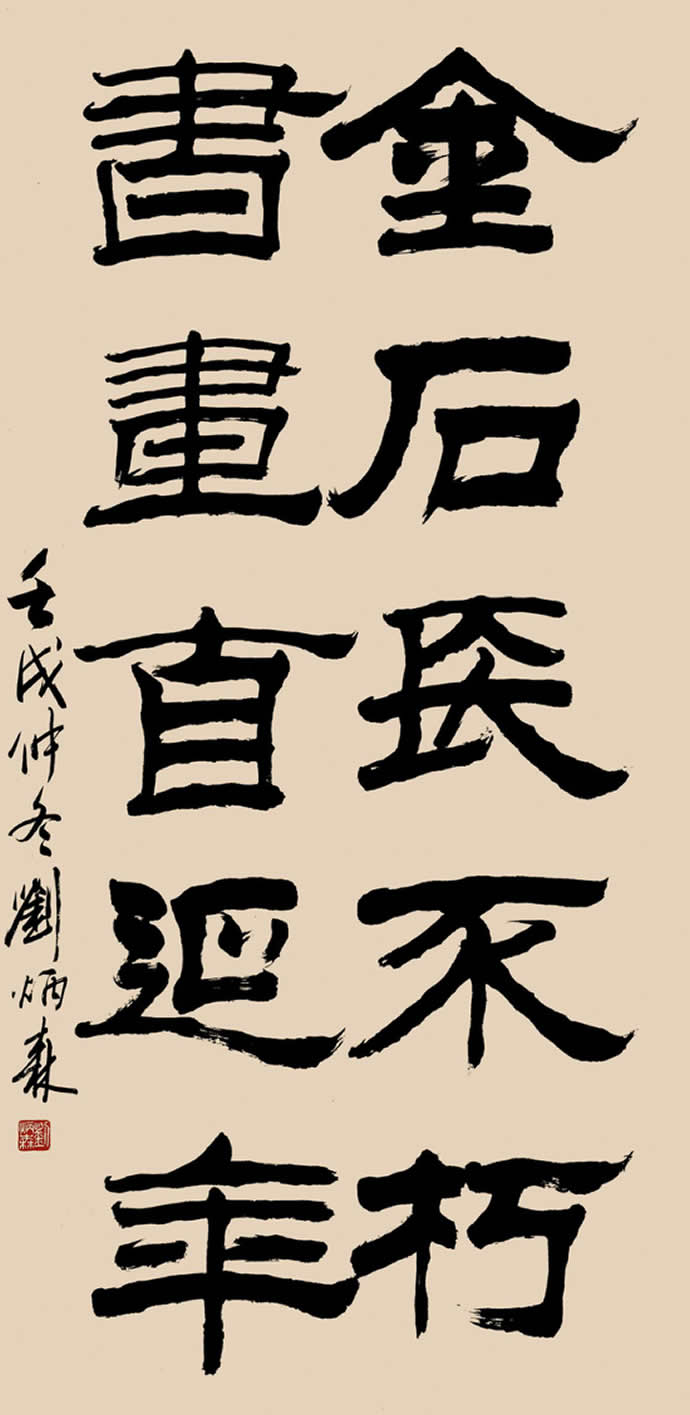 金石長不朽
書畫直延年
壬戌仲冬劉炳森
劉炳森